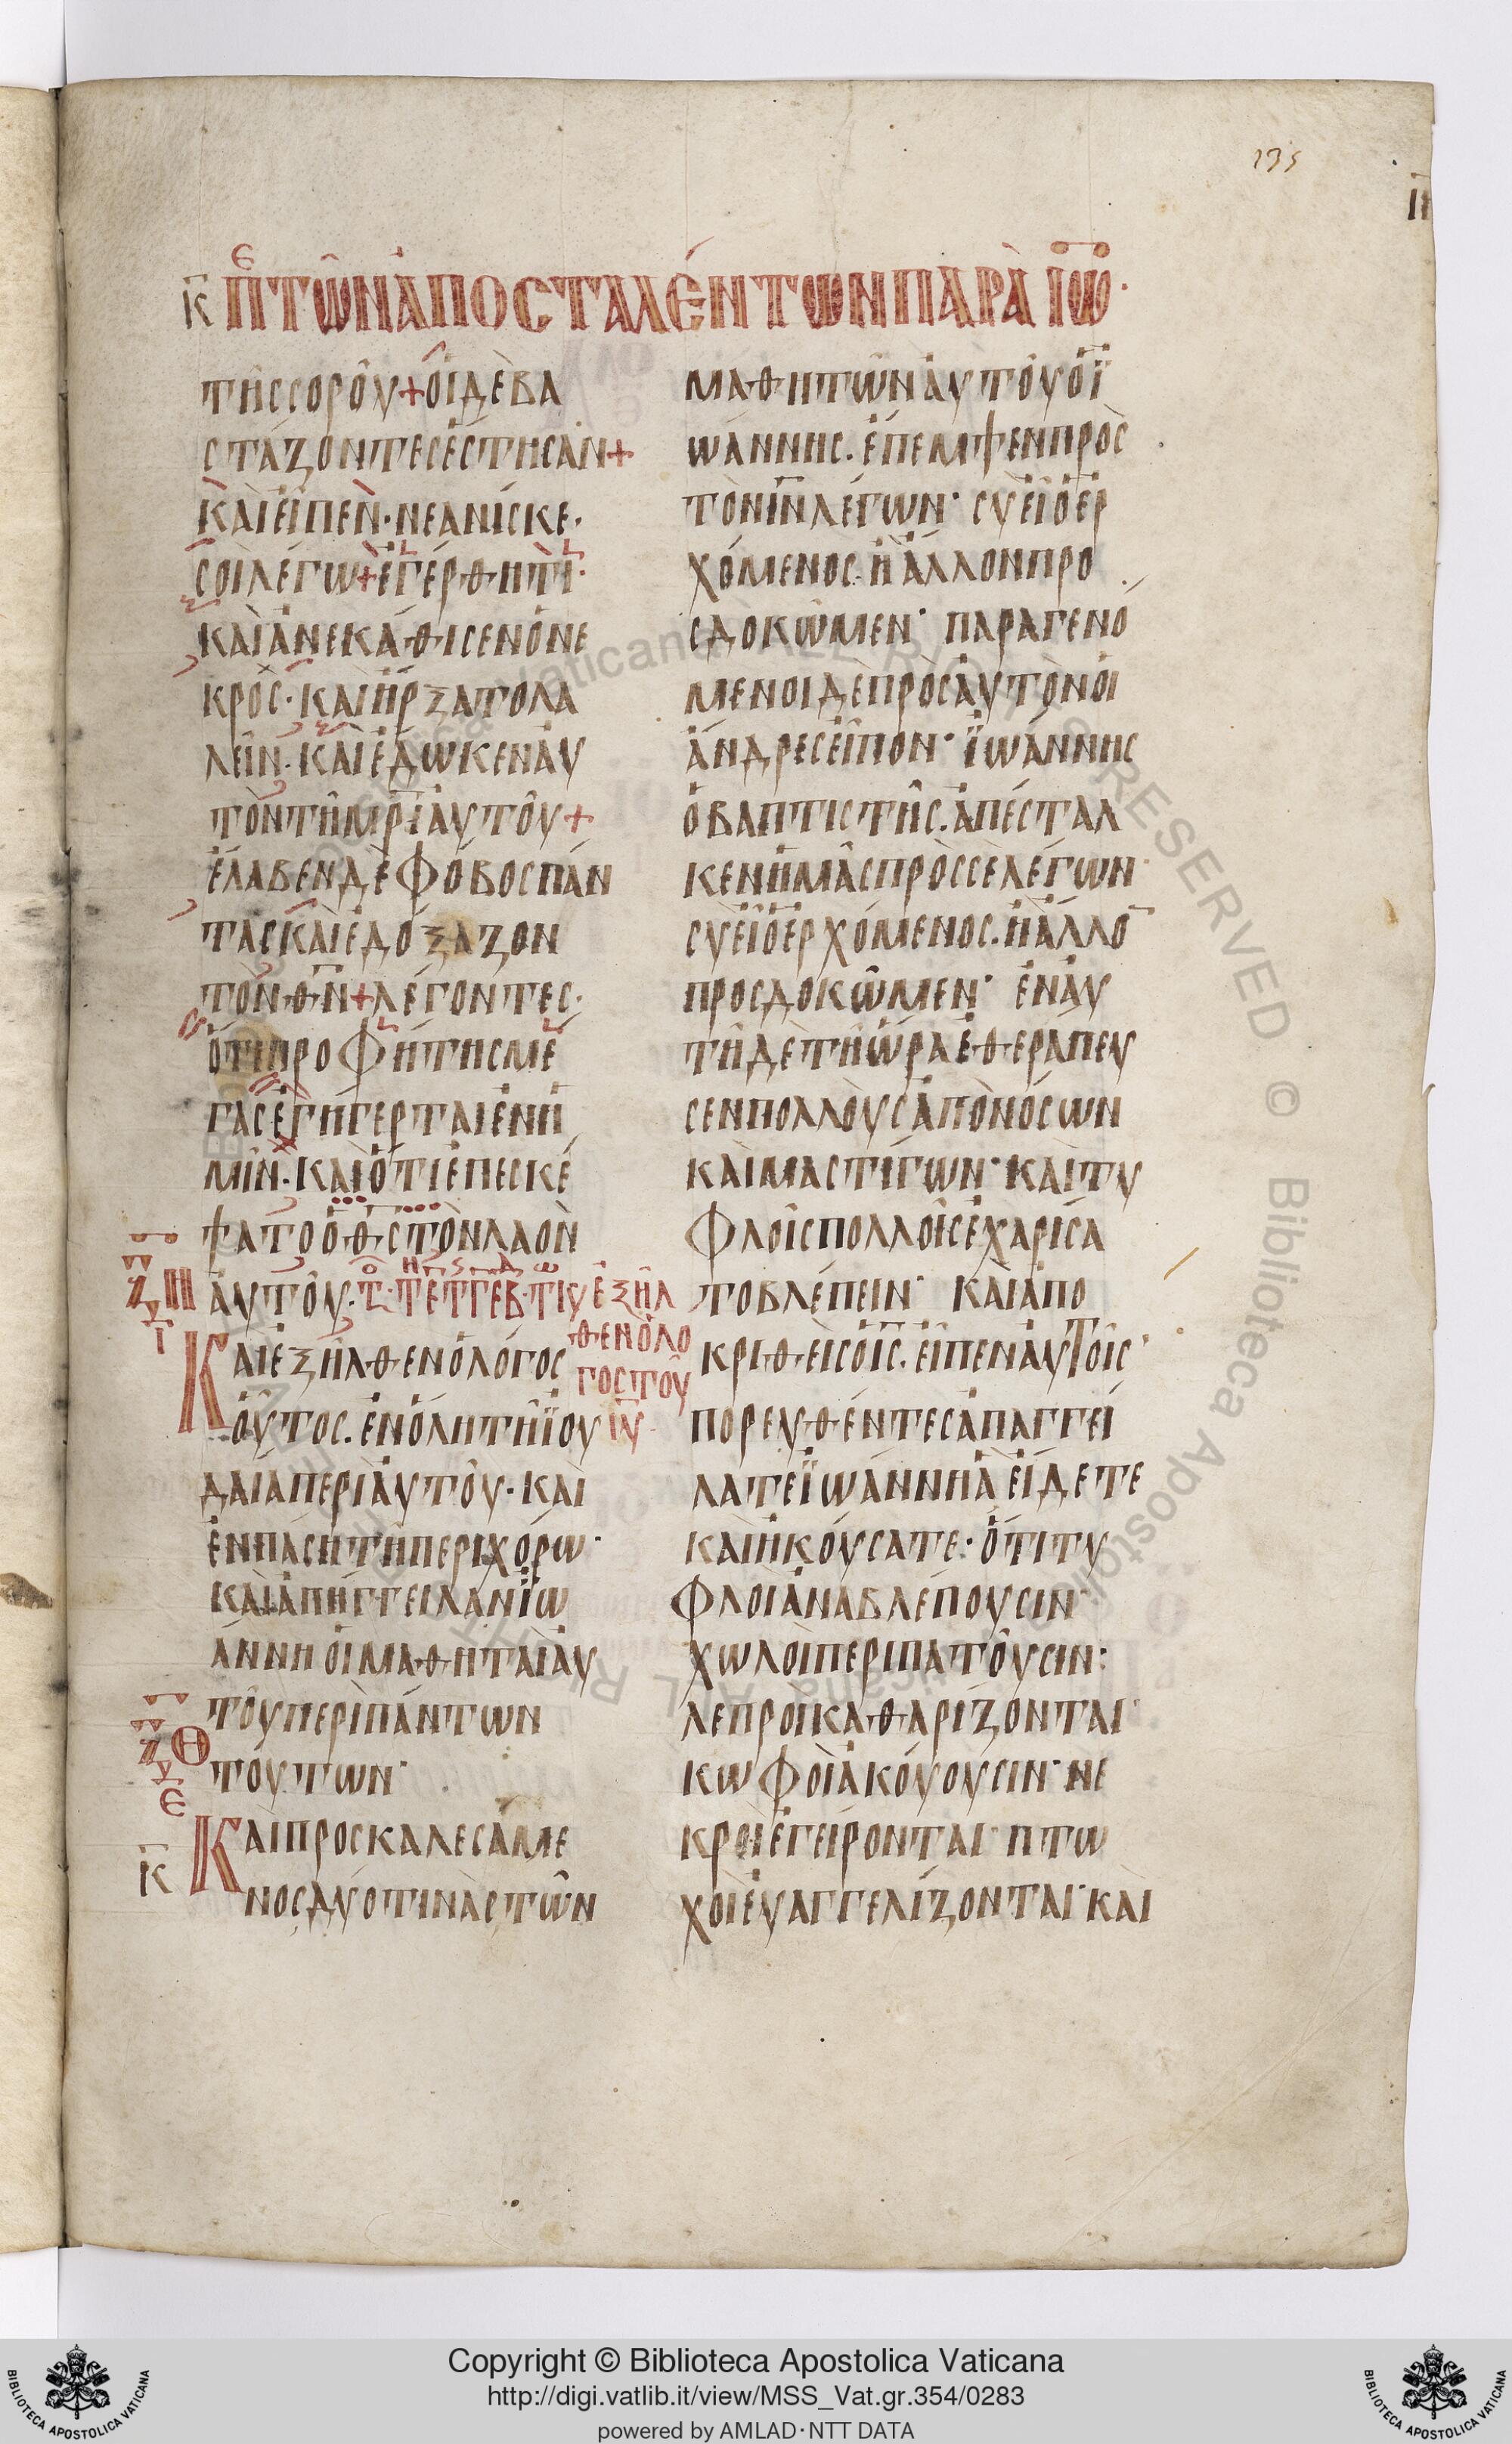 135
κ̅ Π̅ε ΤΩ̂Ν ἈΠΟΣΤΑΛΈΝΤΩΝ ΠΑΡᾺ ΙΩ̅·
ΤΗ͂ССΟΡΟ͂Υ+ΟΙΔῈΒΑ
СΤΆΖΟΝΤΕСἜСΤΗСΑΝ+
ΚΑῚΕἶΠΕΝ·ΝΕΑΝΊСΚΕ·
СΟῚΛΈΓΩ+ἘΓΈΡΘΗΤΙ·
ΚΑῚἈΝΕΚΆΘΙСΕΝὉΝΕ
ΚΡΌС·ΚΑῚἬΡΞΑΤΟΛΑ
ΛΕΙ͂Ν·ΚΑῚἜΔΩΚΕΝἈΥ
ΤῸΝΤΗ͂ΜΡ̅ΙἈΥΤΟ͂Υ+
ἜΛΑΒΕΝΔῈΦΌΒΟСΠΆΝ
ΤΑСΚΑῚἘΔΌΞΑΖΟΝ
ΤῸΝΘ̅Ν̅+ΛΈΓΟΝΤΕС·
ὍΤΙΠΡΟΦΉΤΗСΜΈ
ΓΑСἘΓΉΓΕΡΤΑΙἘΝἩ
ΜΙ͂Ν·ΚΑῚὍΤΙἘΠΕСΚΈ
ΨΑΤΟὉΘ̅С̅ΤῸΝΛΑῸΝ
ἈΥΤΟ͂Υ·
ἘΞΗ͂Λ
ΘΕΝὉΛΌ
ΓΟСΤΟΥ͂
Ι̅Υ̅·
ΚΑῚἘΞΗ͂ΛΘΕΝὉΛΌΓΟС
ὉΥ͂ΤΟС·ἘΝὉΛΗΤΗ͂ΪΟΥ
ΔΑΊΑΠΕΡῚἈΥΤΟ͂Υ·ΚΑῚ
ἘΝΠΆСΗΤΗ͂ΠΕΡΙΧΌΡΩ·
ΚΑῚἈΠΉΓΓΕΙΛΑΝΪΩ
ΆΝΝΗΟἹΜΑΘΗΤΑῚἈΥ
ΤΟ͂ΥΠΕΡῚΠΆΝΤΩΝ
ΤΟΎΤΩΝ·
ΚΑῚΠΡΟСΚΑΛΕСΆΜΕ
ΝΟСΔΎΟΤΙΝᾺСΤΩ͂Ν
ΜΑΘΗΤΩ͂ΝἈΥΤΟ͂ΥὉΪ
ΩΆΝΝΗС·ἜΠΕΜΨΕΝΠΡῸС
ΤῸΝΙ̅Ν̅ΛΈΓΩΝ· СῪΕἾὉἘΡ
ΧΌΜΕΝΟС·ἪἌΛΛΟΝΠΡΟ
СΔΟΚΩ͂ΜΕΝ· ΠΑΡΑΓΕΝΌ
ΜΕΝΟΙΔῈΠΡῸСἈΥΤῸΝΟἹ
ἌΝΔΡΕСΕἾΠΟΝ· ΪΩΆΝΝΗС
ὉΒΑΠΤΙСΤΗ͂С·ἈΠΈСΤΑΛ
ΚΕΝἩΜΑ͂СΠΡῸССΕΛΈΓΩΝ·
СῪΕἾὉἘΡΧΌΜΕΝΟС·ἪἌΛΛΟ̅
ΠΡΟСΔΟΚΩ͂ΜΕΝ· ἘΝἈΥ
ΤΗ͂ΔῈΤΗ͂ὭΡΑἘΘΕΡΆΠΕΥ
СΕΝΠΟΛΛΟῪСἈΠῸΝΌСΩΝ
ΚΑῚΜΑСΤΊΓΩΝ· ΚΑῚΤΥ
ΦΛΟΙ͂СΠΟΛΛΟΙ͂СἘΧΑΡΊСΑ
ΤΟΒΛΈΠΕΙΝ· ΚΑῚἈΠΟ
ΚΡΙΘΕῚСὉΙ̅С̅·ΕἾΠΕΝἈΥΤΟΙ͂С·
ΠΟΡΕΥΘΈΝΤΕСἈΠΑΓΓΕΊ
ΛΑΤΕΪΩΆΝΝΗἋΕἼΔΕΤΕ
ΚΑῚἨΚΟΎСΑΤΕ· ὍΤΙΤΥ
ΦΛΟῚἈΝΑΒΛΈΠΟΥСΙΝ·
ΧΩΛΟῚΠΕΡΙΠΑΤΟ͂ΥСΙΝ:
ΛΕΠΡΟῚΚΑΘΑΡΊΖΟΝΤΑΙ·
ΚΩΦΟῚἈΚΟΎΟΥСΙΝ· ΝΕ
ΚΡΟῚἘΓΕΊΡΟΝΤΑΙ· ΠΤΩ
ΧΟῚἘΥΑΓΓΕΛΊΖΟΝΤΑΙ· ΚΑῚ
Copyright © Biblioteca Apostolica Vaticana
http://digi.vatlib.it/view/MSS_Vat.gr.354/0283
powered by AMLAD·NTT DATA
BIBLIOTECA APOSTOLICA VATICANA
BIBLIOTECA APOSTOLICA VATICANA